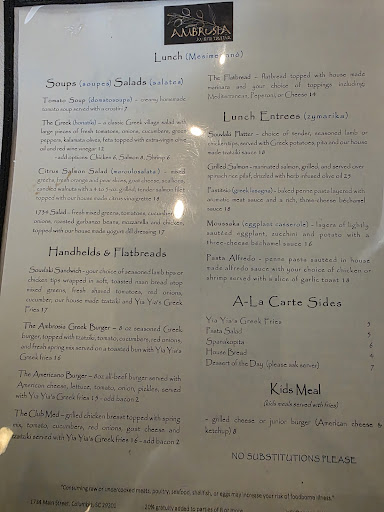 AMBROSIA
Lunch (Mesimeriano)
Soups (soupes) Salads (salates)
Tomato Soup (domatosoupa) – creamy homemade
tomato soup served with a crostini 7
The Greek (horiatiki) – a classic Greek village salad with
large pieces of fresh tomatoes, onions, cucumbers, green
peppers, kalamata olives, feta topped with extra-virgin olive
oil and red wine vinegar 12
- add options: Chicken 6, Salmon 8, Shrimp 6
Citrus Salmon Salad – mixed
candied walnuts with a 4 to 5 oz grilled, tender salmon filet
topped with our house made citrus vinaigrette 18
1734 Salad – fresh mixed greens, tomatoes, cucumbers,
onions, roasted garbanzo beans, mozzarella and chicken,
topped with our house made yogurt dill dressing 17
Handhelds & Flatbreads
Souvlaki Sandwich – your choice of seasoned lamb tips or
chicken tips wrapped in soft, toasted naan bread atop
mixed greens, fresh shaved tomatoes, red onions,
cucumber, our house made tzatziki and Yia Yia's Greek
Fries 17
The Ambrosia Greek Burger – 8 oz seasoned Greek
burger, topped with tzatziki, tomato, cucumbers, red onions,
and fresh spring mix served on a toasted bun with Yia Yia's
Greek Fries 18
The Americano Burger – 8 oz all-beef burger served with
American cheese, lettuce, tomato, onion, pickles, served
with Yia Yia's Greek fries 15 - add bacon 2
The Club Med – grilled chicken breast topped with spring
mix, tomato, cucumbers, red onions, goat cheese and
tzatziki served with Yia Yia's Greek fries 16 - add bacon 2
The Flatbread – flatbread topped with house made
marinara and your choice of toppings including:
Mediterranean, Peperoni, or Cheese 14
Lunch Entrees (zymarika)
Souvlaki Platter – choice of tender, seasoned lamb or
chicken tips, served with Greek potatoes, pita and our house
made tzatziki sauce 18
Grilled Salmon – marinated salmon, grilled, and served over
spinach rice pilaf, drizzled with herb infused olive oil 23
Pastitsio (greek lasagna) – baked penne pasta layered with
aromatic meat sauce and a rich, three-cheese béchamel
sauce 18
Moussaka (eggplant casserole) – layers of lightly
sautéed eggplant, zucchini and potato with a
three-cheese béchamel sauce 16
Pasta Alfredo – penne pasta sautéed in house
made alfredo sauce with your choice of chicken or
shrimp served with a slice of garlic toast 18
A-La Carte Sides
Yia Yia's Greek Fries 5
Pasta Salad 5
Spanakopita 6
House Bread 4
Dessert of the Day (please ask server) 7
Kids Meal
(kids meals served with fries)
– grilled cheese or junior burger (American cheese &
ketchup) 8
NO SUBSTITUTIONS PLEASE
*Consuming raw or undercooked meats, poultry, seafood, shellfish, or eggs may increase your risk of foodborne illness.*
1734 Main Street, Columbia, SC 29201 20% gratuity added to parties of 6 or more